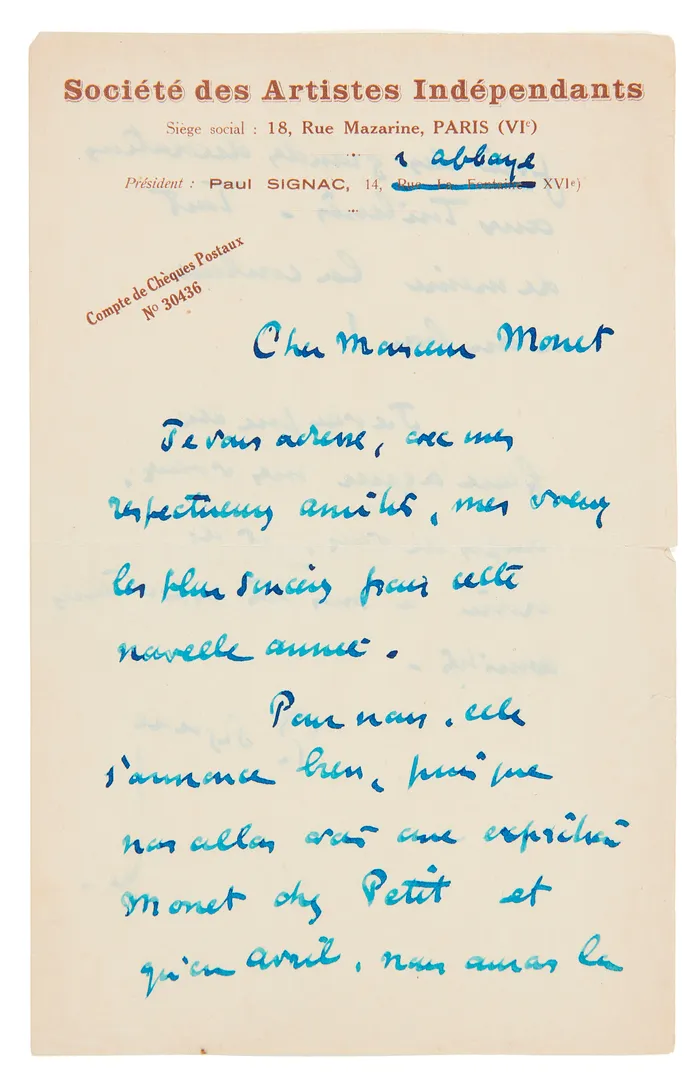 Société des Artistes Indépendants
Siège social : 18, Rue Mazarine, PARIS (VIᵉ)
r abbaye
Président : Paul SIGNAC, 14, Rue La Fontaine XVIᵉ)
Compte de Chèques Postaux
Nº 30436
Cher Monsieur Monet
Je vous adresse, avec mes
respectueuses amitiés, mes vœux
les plus sincères pour cette
nouvelle année.
Pour nous, cela
s'annonce bien, puisque
nous allons avoir une exposition
Monet chez Petit et
qu'en avril, nous aurons la